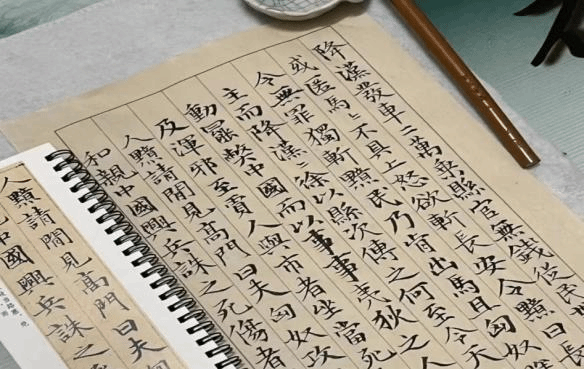 降漢發車二萬乘縣官無錢從民
或匿馬〻不具上怒欲斬長安令黯曰長
令無罪獨斬黯民乃肯出馬且匈奴
主而降漢〻徐以縣次傳之何至令天
動罷獘中國而以事事夷狄之人
及渾邪至賈人與市者坐當死
人黯請閒見高門曰夫匈奴攻
和親中國興兵誅之死傷者
人黯請閒見高門曰夫匈
中國興兵誅之